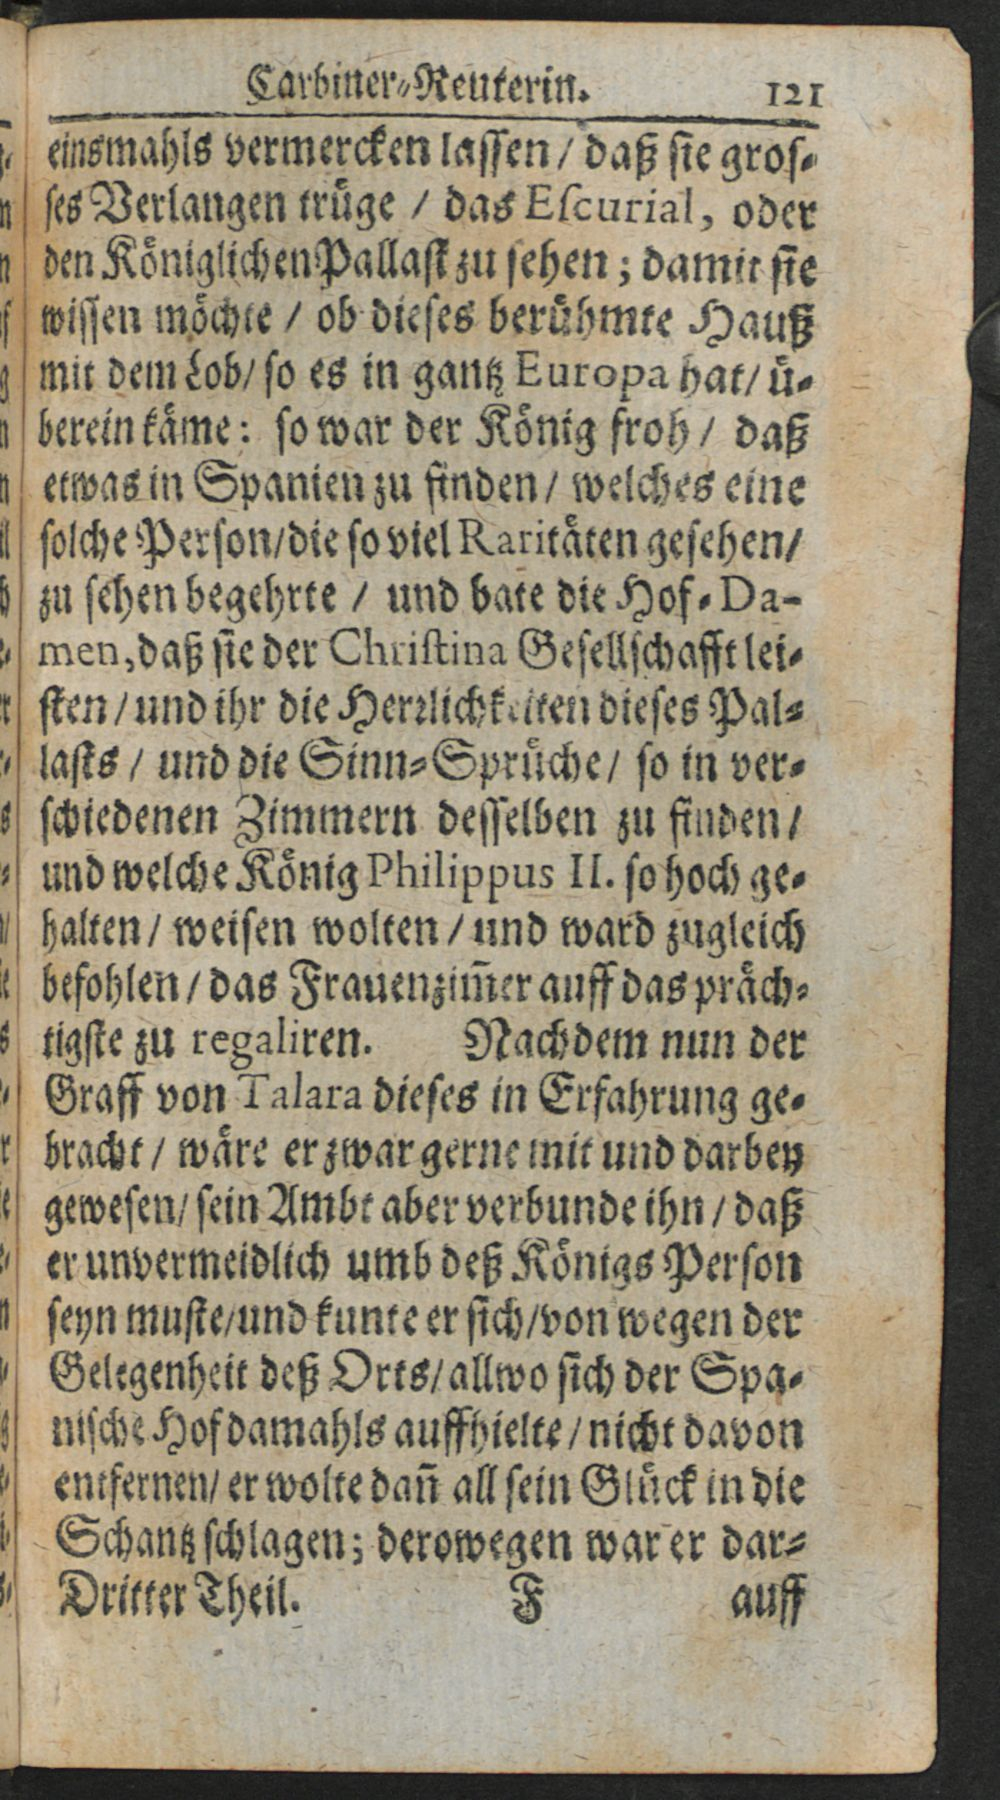 Carbiner-Reuterin. 121
einsmahls vermercken lassen / daß sie gros-
ses Verlangen trüge / das Escurial, oder
den Königlichen Pallast zu sehen; damit sie
wissen möchte / ob dieses berühmte Hauß
mit dem Lob/ so es in gantz Europa hat/ ü-
berein käme: so war der König froh / daß
etwas in Spanien zu finden / welches eine
solche Person/die so viel Raritäten gesehen/
zu sehen begehrte / und bate die Hof-Da-
men, daß sie der Christina Gesellschafft lei-
sten / und ihr die Herrlichkeiten dieses Pal-
lasts / und die Sinn-Sprüche / so in ver-
schiedenen Zimmern desselben zu finden /
und welche König Philippus II. so hoch ge-
halten / weisen wolten / und ward zugleich
befohlen / das Frauenzim̃er auff das präch-
tigste zu regaliren. Nachdem nun der
Graff von Talara dieses in Erfahrung ge-
bracht / wäre er zwar gerne mit und darbey
gewesen/ sein Ambt aber verbunde ihn / daß
er unvermeidlich umb deß Königs Person
seyn muste/und kunte er sich/von wegen der
Gelegenheit deß Orts/ allwo sich der Spa-
nische Hof damahls auffhielte / nicht davon
entfernen/ er wolte dañ all sein Glück in die
Schantz schlagen; derowegen war er dar-
Dritter Theil. F auff